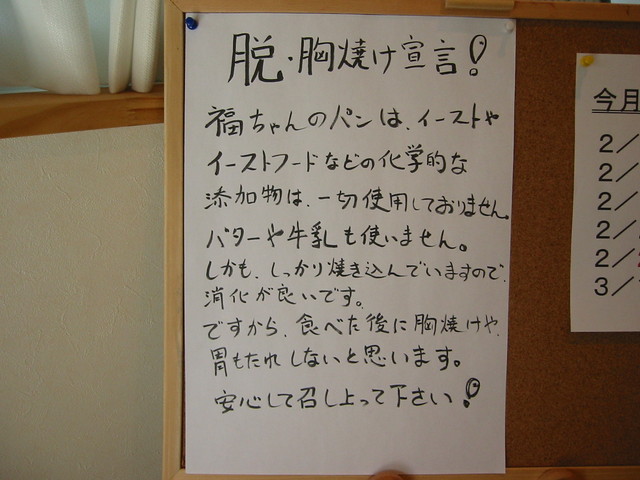 脱・胸焼け宣言!
福ちゃんのパンは、イーストや
イーストフードなどの化学的な
添加物は、一切使用しておりません。
バターや牛乳も使いません。
しかも、しっかり焼き込んでいますので、
消化が良いです。
ですから、食べた後に胸焼けや、
胃もたれしないと思います。
安心して召し上って下さい!
今月
2/
2/
2/
2/
2/
3/